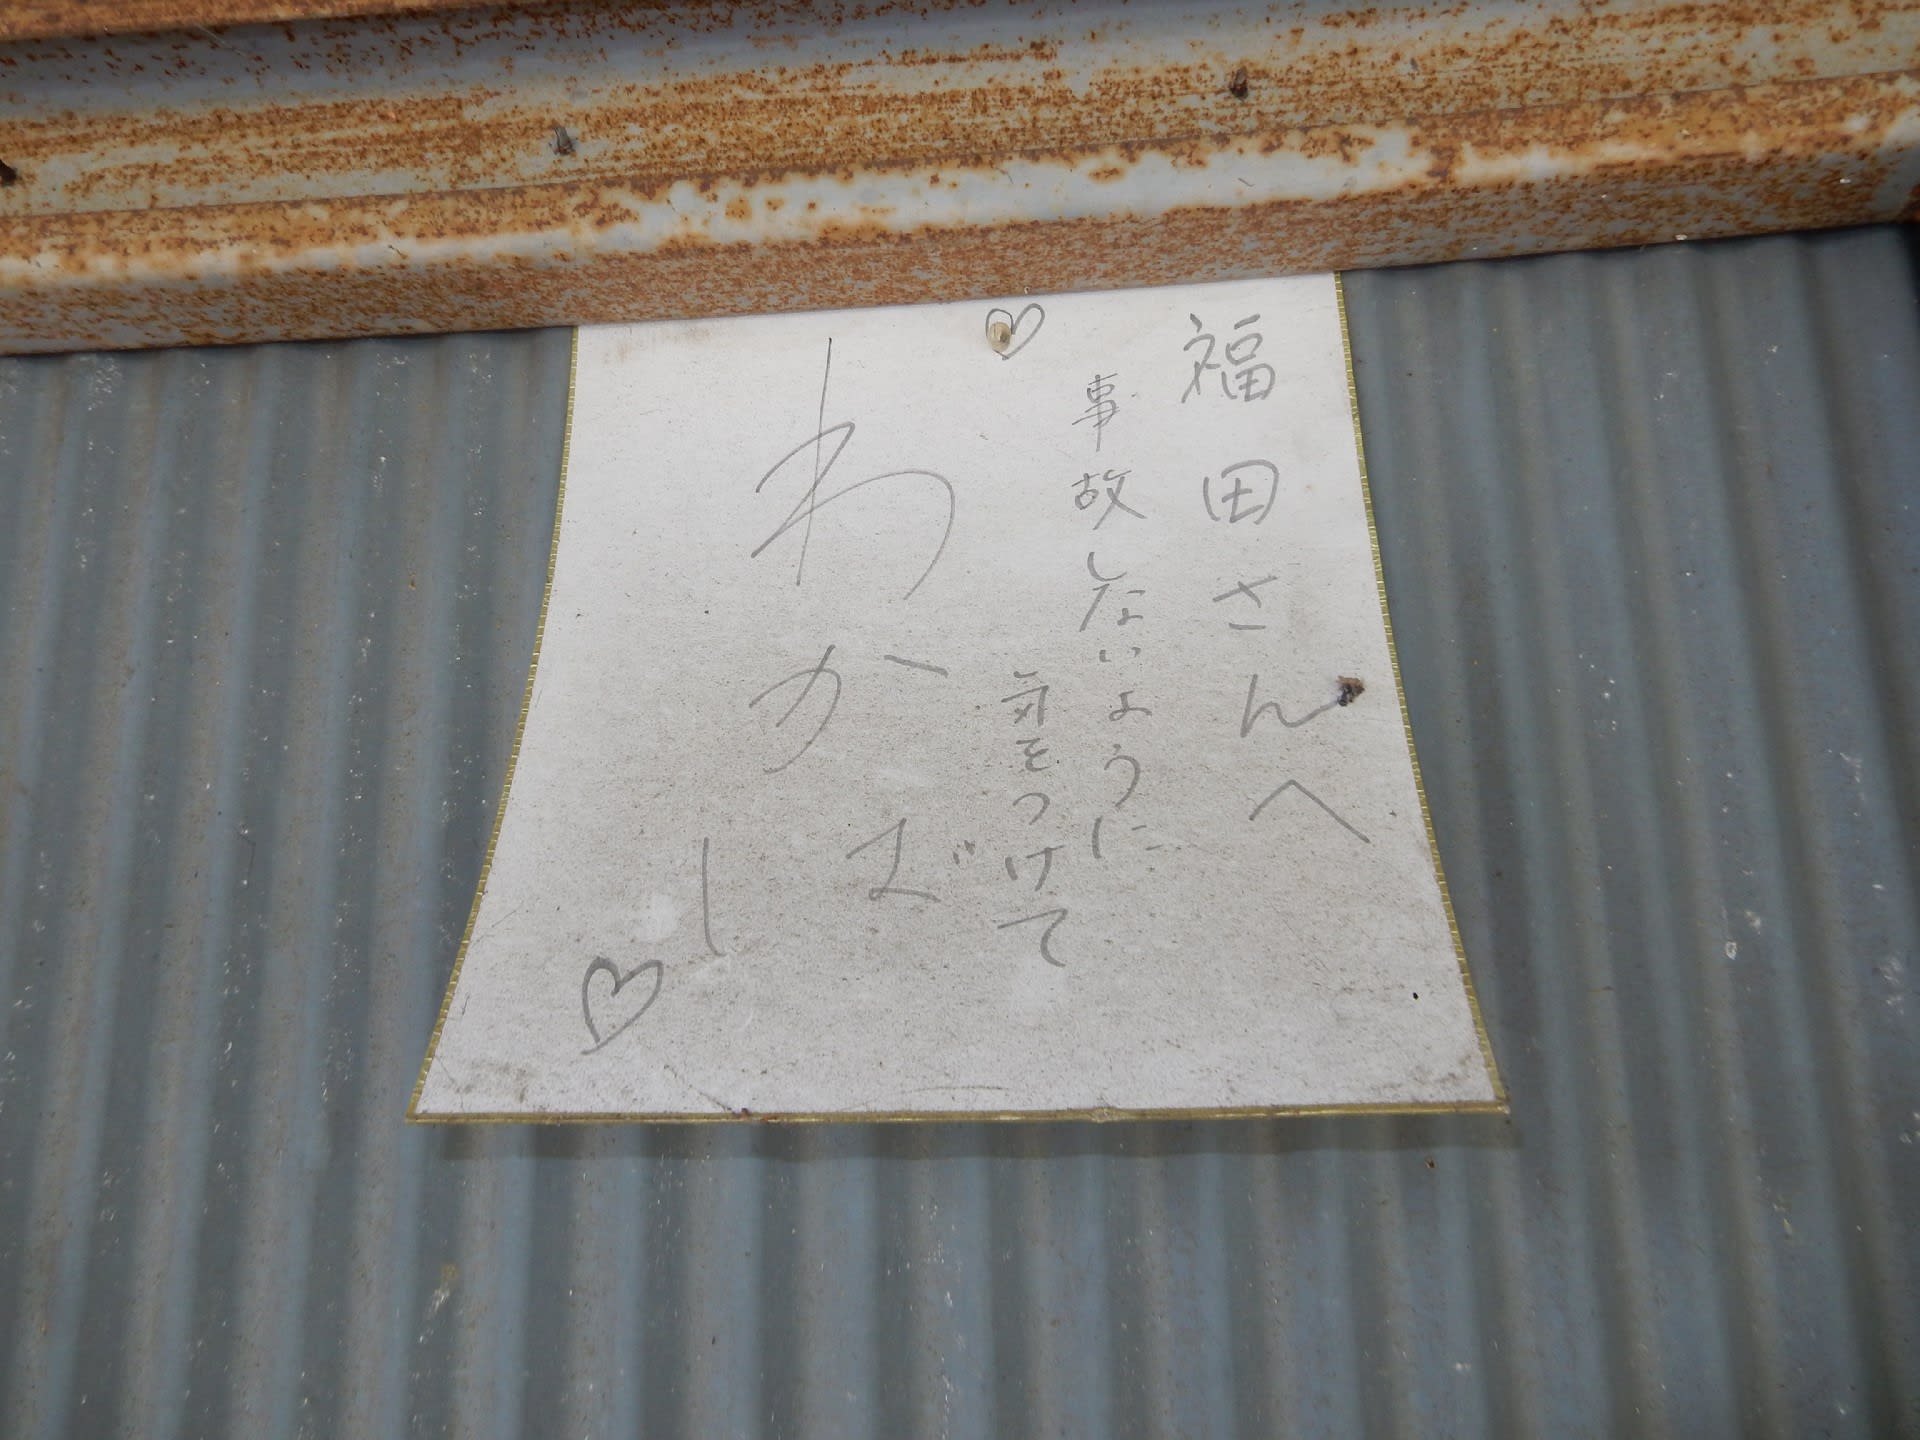 福田さんへ
事故しないように
気をつけて